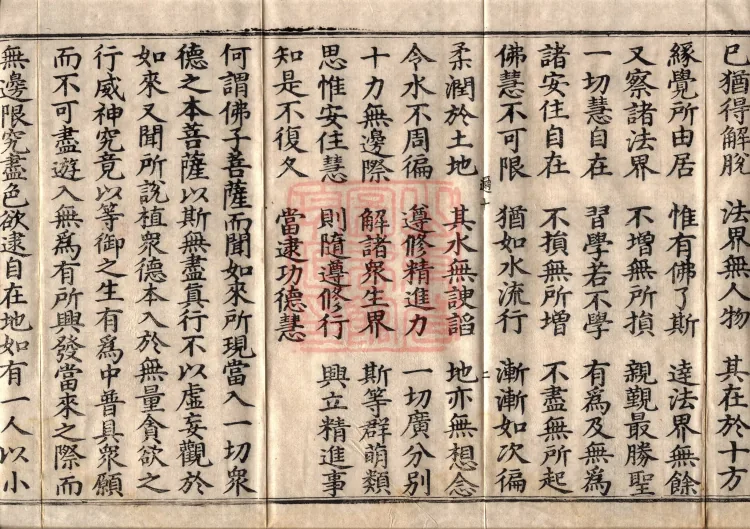 已猶得解脫 法界無人物 其在於十方
緣覺所由居 惟有佛了斯 達法界無餘
又察諸法界 不增無所損 親覲最勝聖
一切慧自在 習學若不學 有爲及無爲
諸安住自在 不損無所增 不盡無所起
佛慧不可限 猶如水流行 漸漸如次徧
二
柔潤於土地 其水無諛諂 地亦無想念
令水不周徧 遵修精進力 一切廣分別
十力無邊際 解諸衆生界 斯等群萌類
思惟安住慧 則隨遵修行 興立精進事
知是不復久 當逮功德慧
何謂佛子菩薩而聞如來所現當入一切衆
德之本菩薩以斯無盡眞行不以虛妄觀於
如來又聞所說植衆德本入於無量貪欲之
行威神究竟以等御之生有爲中普具衆願
而不可盡遊入無爲有所興發當來之際而
無邊限究盡色欲逮自在地如有一人以小